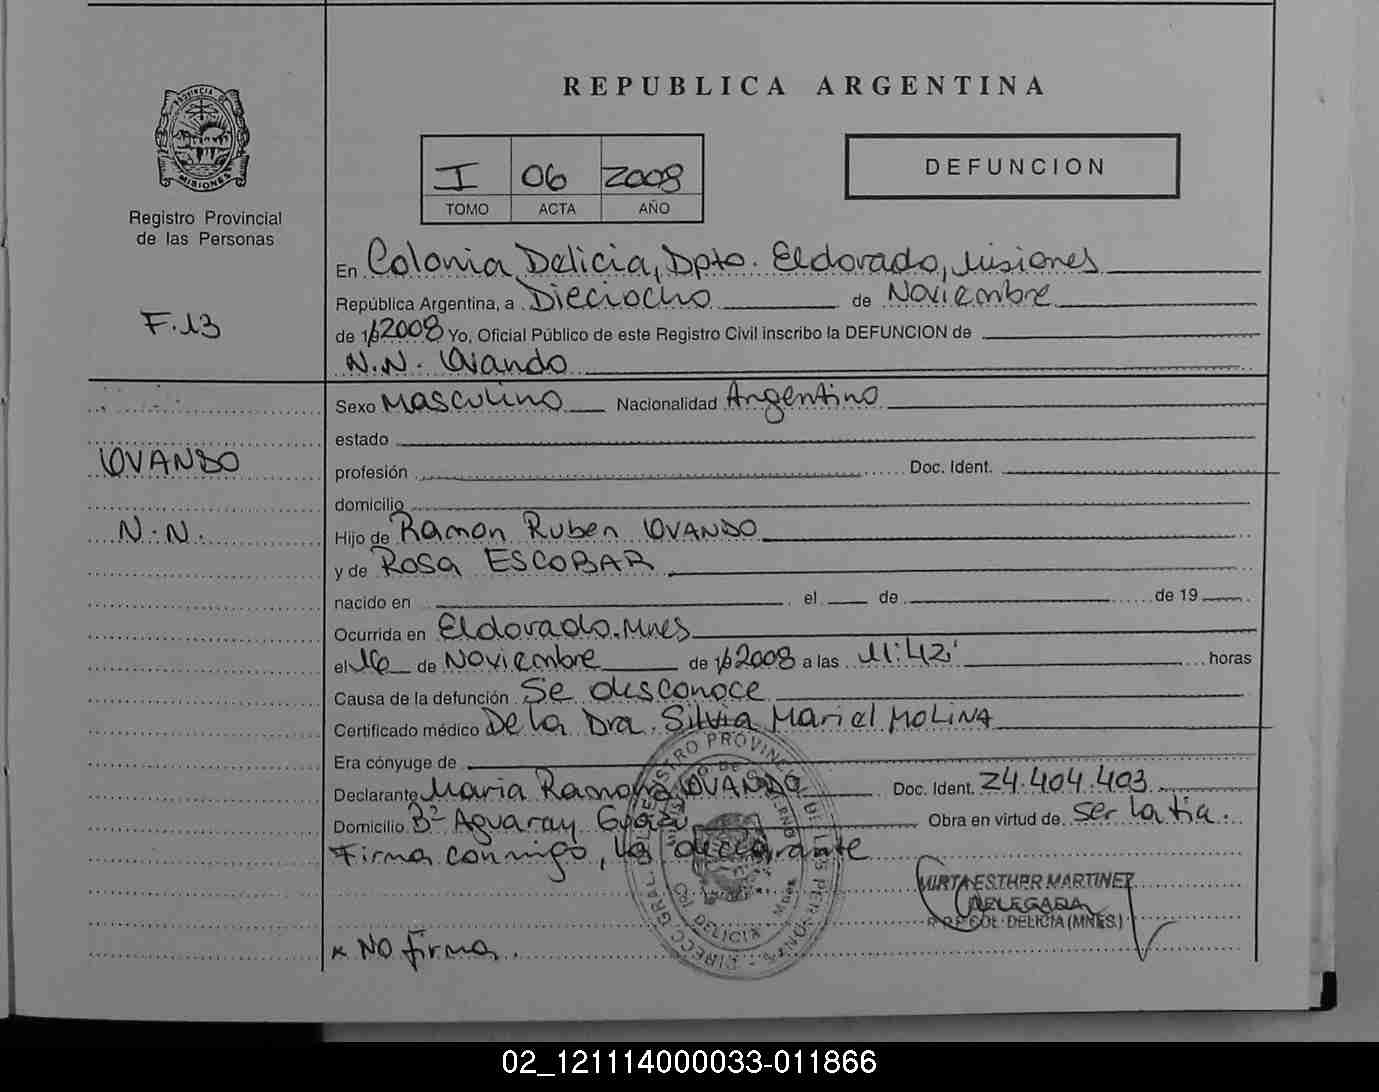 REPUBLICA ARGENTINA
PROVINCIA DE MISIONES
Registro Provincial
de las Personas
I 06 2008
TOMO ACTA AÑO
DEFUNCION
F.13
En Colonia Delicia, Dpto. Eldorado, Misiones
República Argentina, a Dieciocho de Noviembre
de 19 2008 Yo, Oficial Público de este Registro Civil inscribo la DEFUNCION de
N.N. Ovando
OVANDO
N.N.
Sexo Masculino Nacionalidad Argentino
estado
profesión Doc. Ident.
domicilio
Hijo de Ramon Ruben OVANDO
y de Rosa ESCOBAR
nacido en el de de 19
Ocurrida en Eldorado. Mnes
el 16 de Noviembre de 19 2008 a las 11:42' horas
Causa de la defunción Se desconoce
Certificado médico De la Dra. Silvia Mariel MOLINA
Era cónyuge de
Declarante Maria Ramona OVANDO Doc. Ident. 24.404.403
Domicilio Bº Aguaray Guazu Obra en virtud de ser la tia.
Firma conmigo, la declarante
MIRTA ESTHER MARTINEZ
DELEGADA
COL. DELICIA (MNES.)
x No firma.
02_121114000033-011866